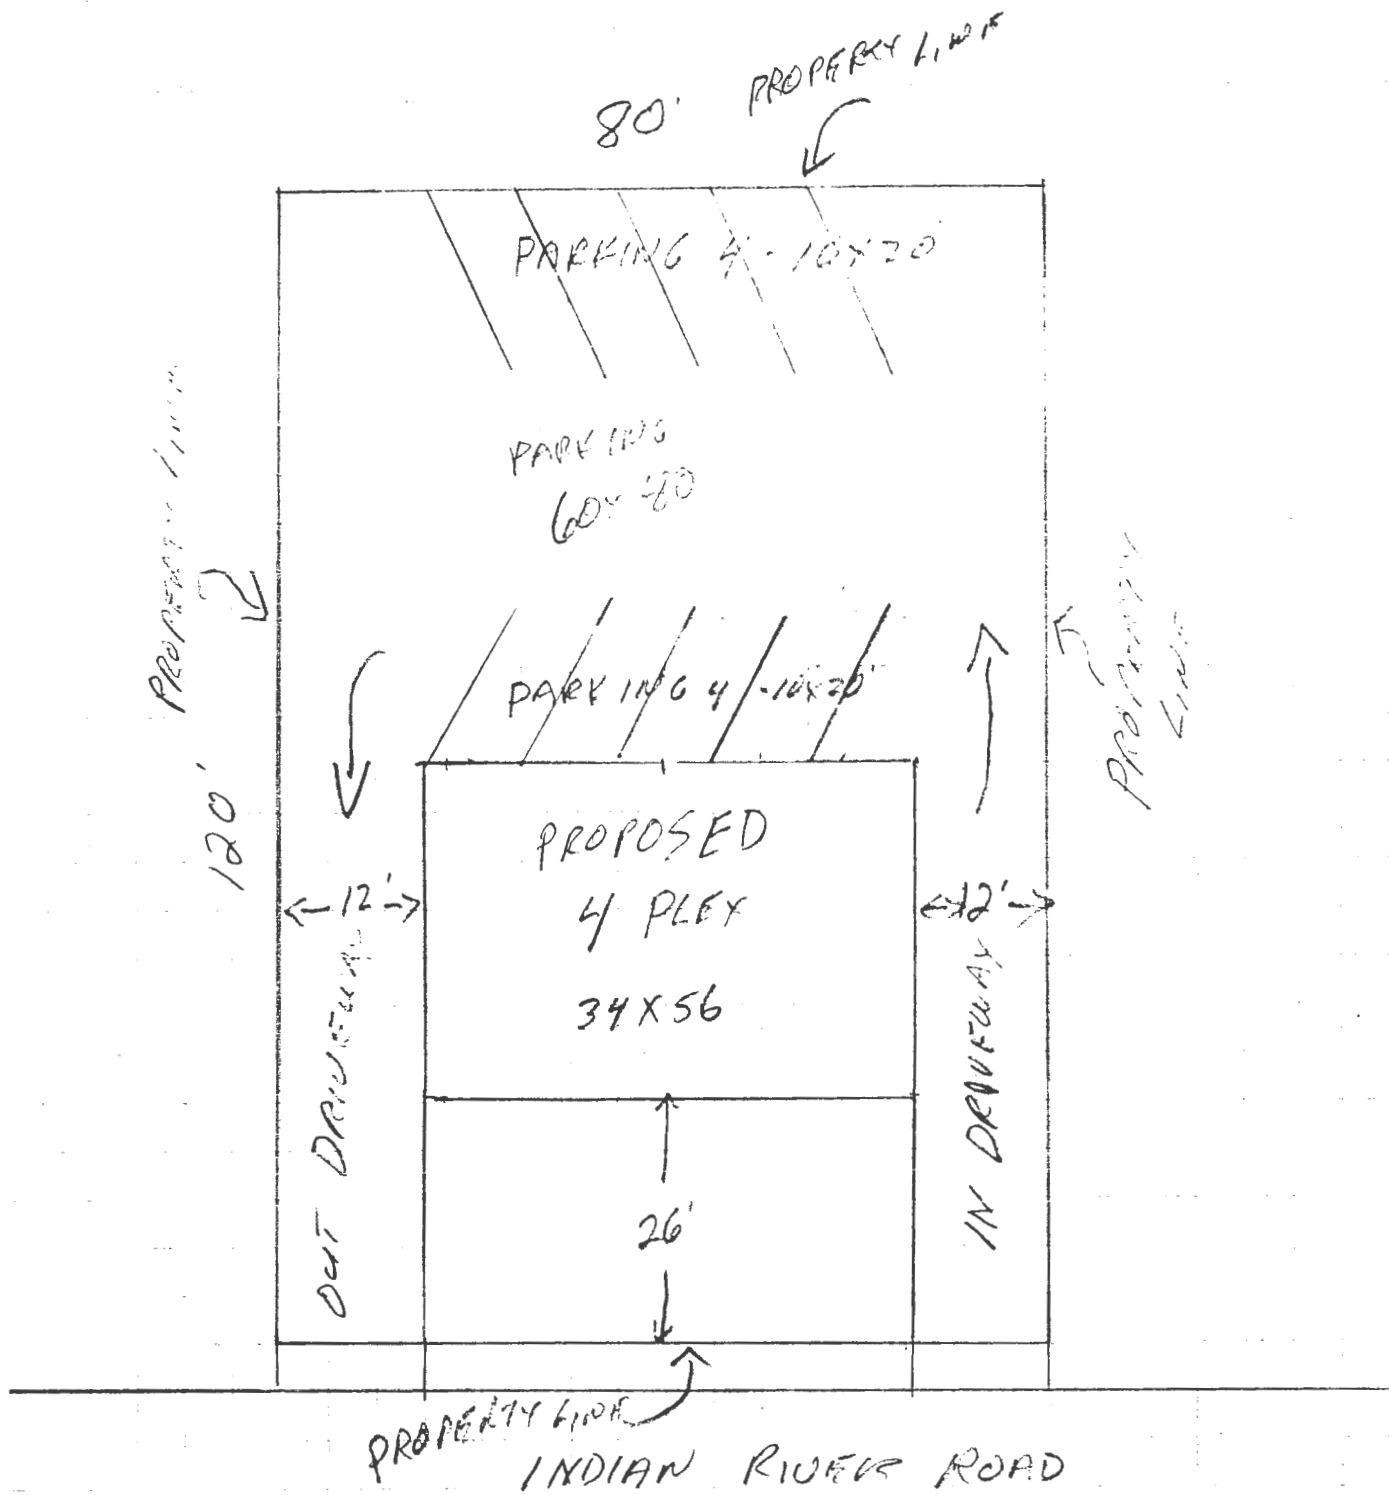 80'
PROPERTY LINE
PARKING 4 - 10X20
PROPERTY LINE
PARKING
60X80
PROPERTY
LINE
PARKING 4 - 10X20'
120'
PROPOSED
4 PLEX
34X56
12'
12'
OUT DRIVEWAY
IN DRIVEWAY
26'
PROPERTY LINE
INDIAN RIVER ROAD